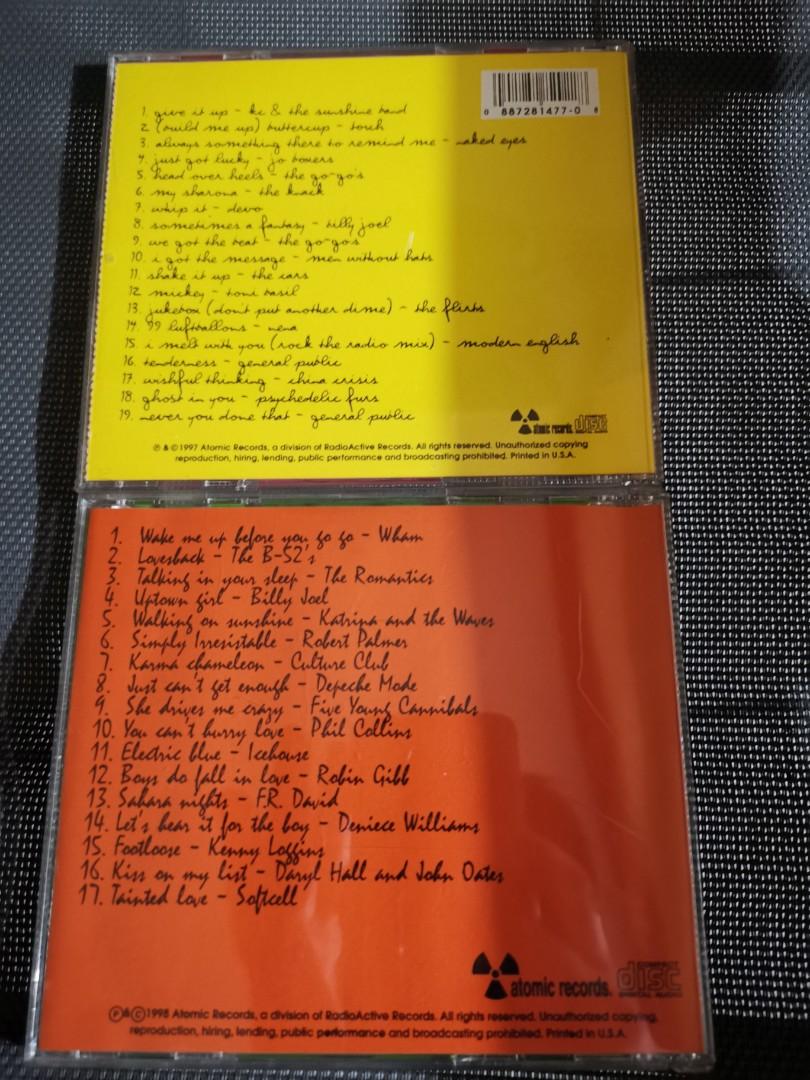 0 887281477-0 8
1. give it up - kc & the sunshine band
2. (build me up) buttercup - torch
3. always something there to remind me - naked eyes
4. just got lucky - jo boxers
5. head over heels - the go-go's
6. my sharona - the knack
7. whip it - devo
8. sometimes a fantasy - billy joel
9. we got the beat - the go-go's
10. i got the message - men without hats
11. shake it up - the cars
12. mickey - toni basil
13. jukebox (don't put another dime) - the flirts
14. 99 luftballons - nena
15. i melt with you (rock the radio mix) - modern english
16. tenderness - general public
17. wishful thinking - china crisis
18. ghost in you - psychedelic furs
19. never you done that - general public
atomic records. disc
℗ & © 1997 Atomic Records, a division of RadioActive Records. All rights reserved. Unauthorized copying
reproduction, hiring, lending, public performance and broadcasting prohibited. Printed in U.S.A.
1. Wake me up before you go go - Wham
2. Lovesback - The B-52's
3. Talking in your sleep - The Romantics
4. Uptown girl - Billy Joel
5. Walking on sunshine - Katrina and the Waves
6. Simply Irresistable - Robert Palmer
7. Karma chameleon - Culture Club
8. Just can't get enough - Depeche Mode
9. She drives me crazy - Five Young Cannibals
10. You can't hurry love - Phil Collins
11. Electric blue - Icehouse
12. Boys do fall in love - Robin Gibb
13. Sahara nights - F.R. David
14. Let's hear it for the boy - Deniece Williams
15. Footloose - Kenny Loggins
16. Kiss on my list - Daryl Hall and John Oates
17. Tainted love - Softcell
atomic records. COMPACT disc DIGITAL AUDIO
℗&© 1998 Atomic Records, a division of RadioActive Records. All rights reserved. Unauthorized copying,
reproduction, hiring, lending, public performance and broadcasting prohibited. Printed in U.S.A.